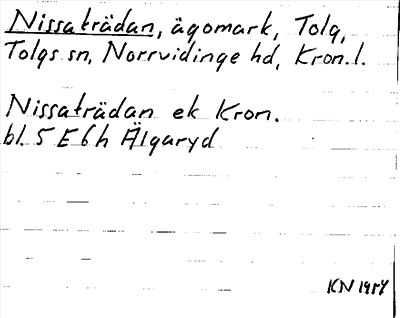 Nissaträdan, ägomark, Tolg,
Tolgs sn, Norrvidinge hd, Kron.l.
Nissaträdan ek Kron.
bl. 5 E 6 h Älgaryd
KN 1954